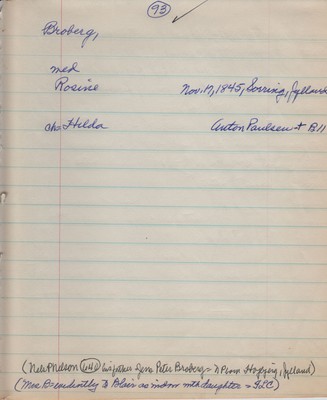 93
Broberg,
med
Rosine Nov. 17, 1845, Sorring, Jylland
ch: Hilda Anton Paulsen +
(Nels P Nelson his father Jens Peter Broberg = N P born Jylland)
(Mrs B evidently to Blair as widow with daughter =